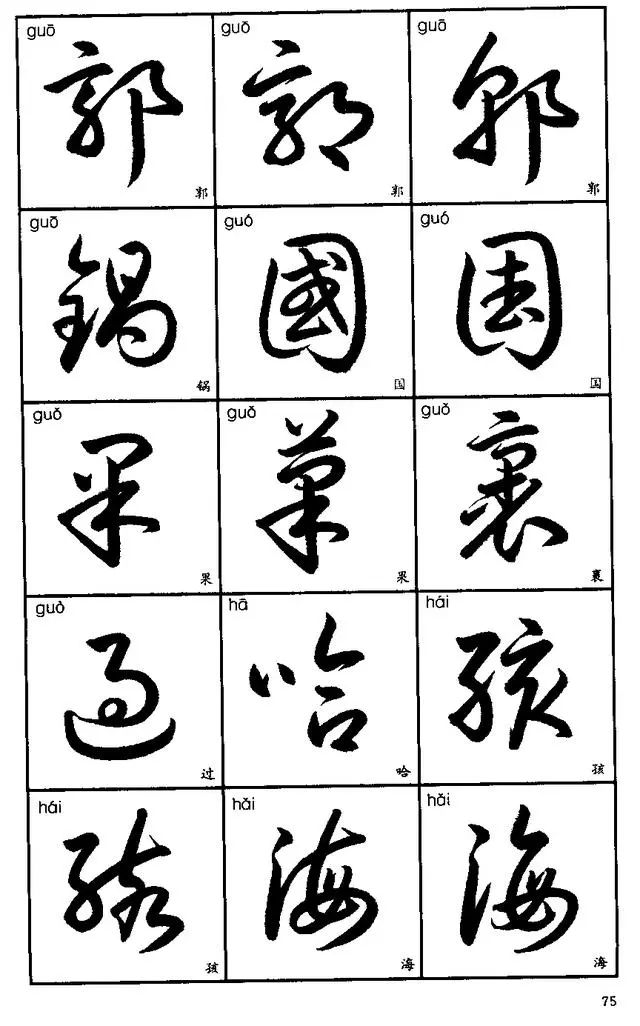 guō guō guō
郭 郭 郭
郭 郭 郭
guō guó guó
鍋 國 国
锅 国 国
guǒ guǒ guǒ
果 菓 裹
果 果 裹
guò hā hái
過 哈 孩
过 哈 孩
hái hǎi hǎi
孩 海 海
孩 海 海
75